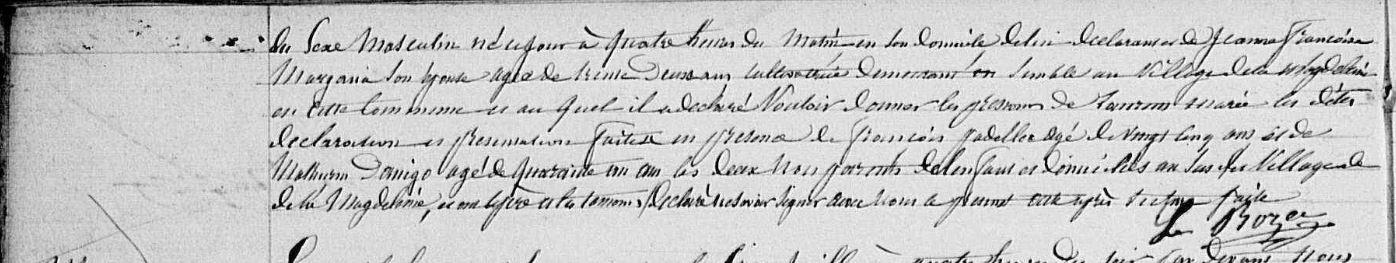 du Sexe Masculin né ce jour à quatre heures du Matin en son domicile de lui déclarant et de Jeanne Françoise
Margaria son épouse agée de trente Deux ans cultivatrice demeurant en semble au Village de la Magdeleine
en cette Commune et au quel il a déclaré Vouloir donner les prenoms de Laurent marie les dites
declaration et presentation faites en presence de françois padellec agé de vingt cinq ans et de
Mathurin Danigo agé de quarante un ans les deux Non parents de l'enfant et domiciliés au susdit Village de
de la Magdeleine, et ont le père et les temoins déclaré ne savoir signer avec Nous le present acte après lecture faite
Le Rozer
quatre heures du soir par devant Nous